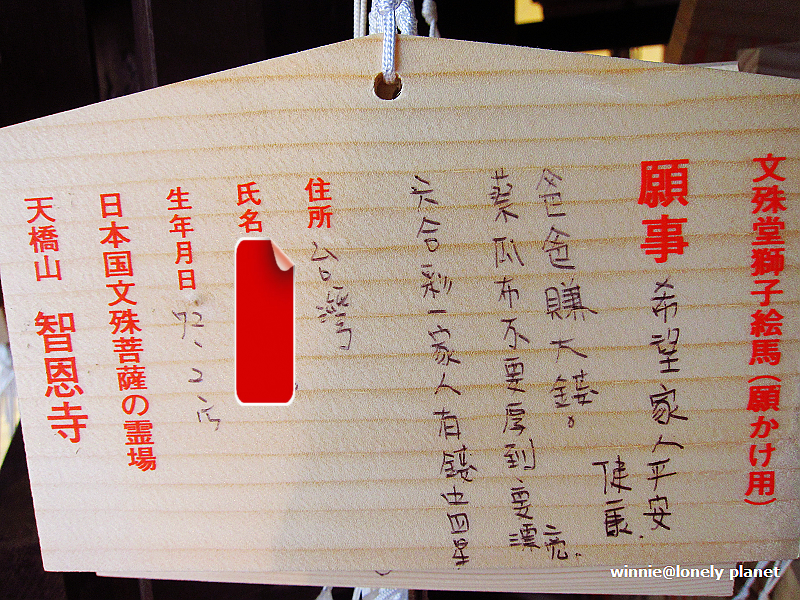 文殊堂獅子絵馬(願かけ用)
願事 希望家人平安
健康.
爸爸賺大錢。
蔡瓜布不要厚到要漂亮.
六合彩一家人有錢中四星
住所 台灣
氏名
生年月日 72、2
日本国文殊菩薩の霊場
天橋山 智恩寺
winnie@lonely planet